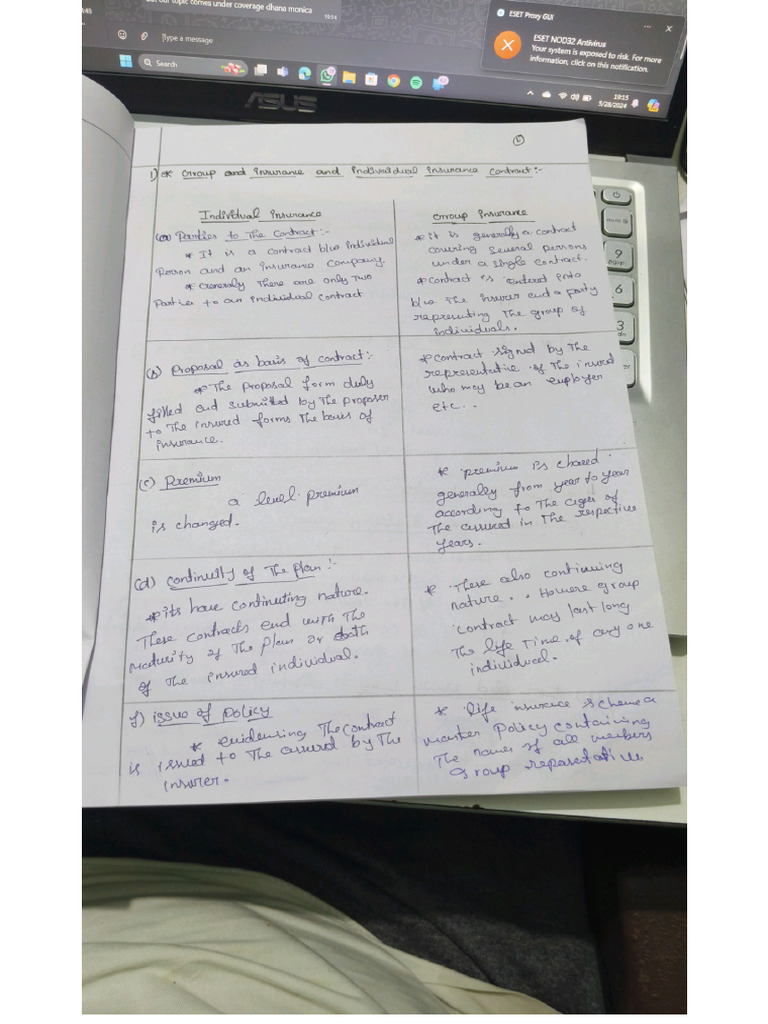 but our topic comes under coverage dhana monica
19:14
Type a message
Search
ESET Proxy GUI
ESET NOD32 Antivirus
Your system is exposed to risk. For more
information, click on this notification.
19:15
5/28/2024
ASUS
1) * Group and insurance and individual insurance contract:-
Individual insurance
(a) Parties to The Contract:-
* It is a contract b/w individual
Person and an insurance company.
* Generaly There are only Two
Parties to an individual contract
Group insurance
* it is generally a contract
covering several persons
under a single contract.
* contract is entered into
b/w The insurer and a party
representing The group of
individuals.
(b) Proposal as basis of contract:-
* The proposal form duly
filled and submitted by The proposer
to The insured forms The basis of
insurance.
* contract signed by The
representative of The insured
who may be an employer
etc..
(c) Premium
a level premium
is changed.
* premium is chared
generally from year to year
according to The ages of
The assured in The respective
years.
(d) continuity of The plan:-
* its have continuting nature.
These contracts end with The
maturity of The plan or death
of The insured individual.
* These also continuing
nature. group
contract may last long
The life Time of any one
individual.
f) issue of policy
* evidensing The contract
is issued to The assured by The
insurer.
* life insurance scheme a
master policy containing
The names of all members
group